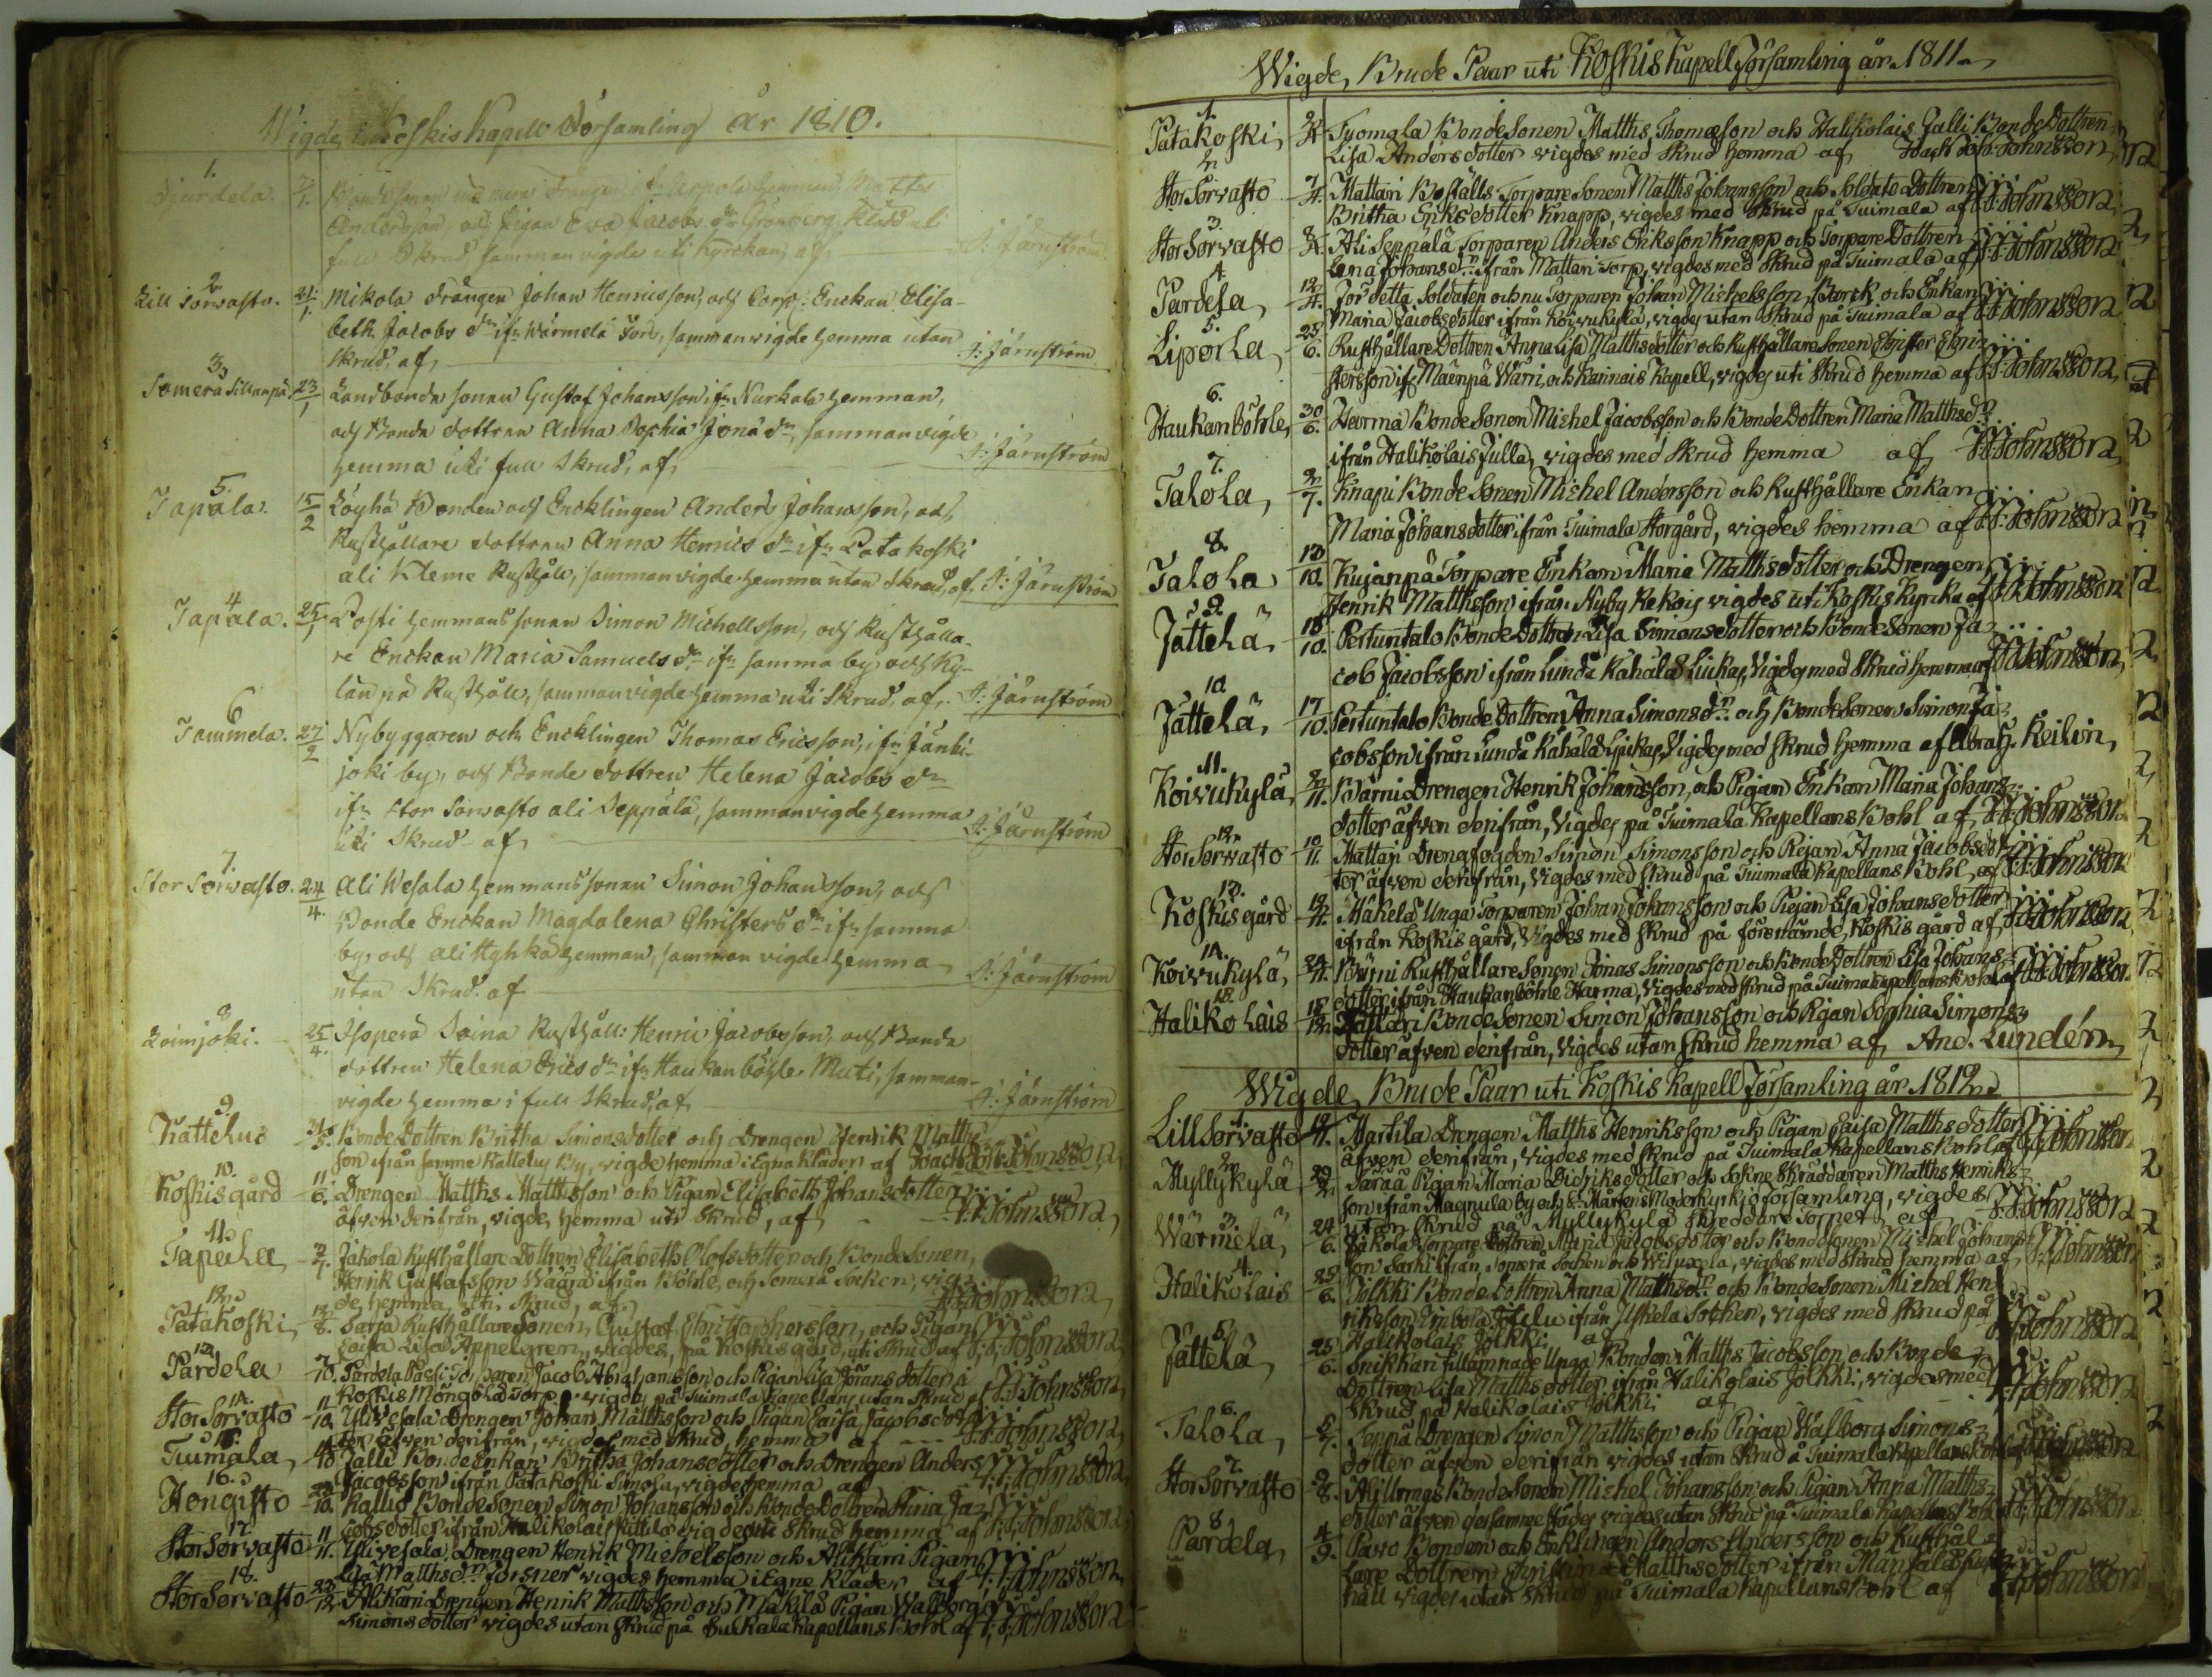 Wigde i Koskis Kapell Församling År 1810.
1.
Pardela. Bondesonen
Andersson, och Pigan Eva Jacobs dr Grönberg, klädd uti
full Skrud sammanvigde uti Kyrckan, af J: Järnström
2
Lill Sorvasto. 21/1 Mikola Drängen Johan Henricsson, och Corp: Enckan Elisa-
beth Jacobs dr ifn Wärmelä Torp, sammanvigde hemma utan
skrud, af J: Järnström
3
Somero Sillanpä. 23/1 Landbonde sonen Gustaf Johansson, ifn Nurkala hemman,
och Bonde dottren Anna Sophia Jonæ dr, sammanvigde
hemma uti full Skrud, af J: Järnström
5.
Tapala. 15/2 Löyhä Bonden och Encklingen Anders Johansson, och
Rusthållare dottren Anna Henrics dr ifn Patakoski
ali Kleme Rusthåll, sammanvigde hemma utan Skrud, af J: Järnström
4
Tapala. 25/1 Posti hemmans sonen Simon Michellsson, och Rusthålla-
re Enckan Maria Samuels dr ifn samma by och Ky-
länpä Rusthåll, sammanvigde hemma uti Skrud, af J: Järnström
6
Tammela. 27/2 Nybyggaren och Encklingen Thomas Ericsson, ifn Jänhi-
joki by, och Bonde dottren Helena Jacobs dr
ifn Stor Sorvasto ali Seppälä, sammanvigde hemma
uti Skrud af J: Järnström
7.
Stor Sorvasto. 24/4. Ali Wesala hemmans sonen Simon Johansson, och
Bonde Enckan Magdalena Christers dr ifn samma
by, och ali Hyhkä hemman, samman vigde hemma
utan Skrud. af J: Järnström
8
Loimjoki. 25/4. Isoperä Saina Rusthåll: Henric Jacobsson, och Bonde
dottren Helena Erics dr ifn Haukanböhle Muti, samman-
vigde hemma i full Skrud, af J: Järnström
9.
Kattelus 31/5. Bonde Dottren Britha Simonsdotter och Drengen Henrik Matths-
son ifrån samme Kattelus By, vigde hemma i Egna Kläder af Joach Joh: Johnsson,
10.
Koskis gård 11/6. Drengen Matths Matthsson och Pigan Elisabeth Johansdotter
äfven derifrån, vigde, hemma uti Skrud, af J:J:Johnsson,
11.
Tapala 3/7. Jakola Rusthållare Dottren Elisabeth Olofsdotter och Bonde Sonen,
Henrik Gustafsson Wägrä ifrån Böhle, och Somerå Socken, vig-
de, hemma, uti Skrud, af J:J:Johnsson,
12.
Patakoski, 12/8. Sarja Rusthållare Sonen, Gustaf Christophersson, och Pigan
Caisa Lisa Appelgren, vigdes, på Koskis gård, uti Skrud af J:J:Johnsson,
13.
Pardela 7/10. Pardela Torparen Jacob Abrahamsson och Pigan Lisa Johans dotter
Koskis Torp, vigdes på Tuimala Kapellans utan Skrud af J:J:Johnsson,
14.
Stor Sorvasto 11/10. Ylivesala Drengen Johan Matthsson och Pigan Caisa Jacobsdot-
ter äfven derifrån, vigdes med Skrud, hemma af J:J:Johnsson,
15.
Tuimala, 14/10. Jalli Bonde Enkan Britha Johansdotter och Drengen Anders
Jacobsson ifrån Patakoski Simola, vigde hemma af J:J:Johnsson,
16.
Hongisto 28/10. Kallio Bonde Sonen Simon Johansson och Bonde Dottren Stina Ja-
cobsdotter ifrån Halikolais Kittilä vigde uti Skrud hemma af J:J:Johnsson,
17.
Stor Sorvasto 11/11. Ylivesala Drengen Henrik Michelsson och Alikarri Pigan
Lisa Matths dr Forsner vigdes hemma i Egne Kläder af J:J:Johnsson,
18.
Stor Sorvasto 22/12. Alikarri Drengen Henrik Matthsson och Mäkilä Pigan Walborg
Simons dotter vigdes utan Skrud på Kapellans Bohl af J:J:Johnsson
Wigde, Brude Paar uti Koskis Kapell Församling år 1811.
1.
Patakoski, Tyomala Bonde Sonen Matths Thomæson och Halikolais Jalli Bonde Dottren
Lisa Andersdotter vigdes med Skrud hemma af Joach Joh: Johnsson,
2.
Stor Sorvasto 7/4. Mattari Boställs Torpare Sonen Matths Johansson och Soldate Dottren
Britha Eriksdotter Knapp, vigdes med Skrud på Tuimala af J:J:Johnsson,
3.
Stor Sorvasto Ali Seppälä Torparen Anders Eriksson Knapp och Torpare Dottren
Lena Johans dr ifrån Mattari Torp, vigdes med Skrud på Tuimala af J:J:Johnsson
4.
Pardela, 12/4. För detta Soldaten och nu Torparen Johan Michelsson Barck och Enkan
Maria Jacobsdotter ifrån Koivukylä, vigdes utan Skrud på Tuimala af J:J:Johnsson
5.
Liporla, 25/6. Rusthållare Dottren Anna Lisa Matthsdotter och Rusthållare Sonen Christer Chri-
stersson ifn Mäenpä Wärri, och Karinais Kapell, vigdes uti Skrud hemma af J:J:Johnsson,
6.
Haukanböhle, 30/6. Harma Bonde Sonen Michel Jacobsson och Bonde Dottren Maria Matths dr
ifrån Halikolais Julla, vigdes med Skrud hemma af J:J:Johnsson,
7.
Talola, 2/7. Knapi Bonde Sonen Michel Andersson och Rusthållare Enkan
Maria Johansdotter ifrån Tuimala Storgård, vigdes hemma af J:J:Johnsson
8.
Talola 13/10. Kujanpä Torpare Enkan Maria Matthsdotter och Drengen
Henrik Matthsson ifrån Nyby Kekois vigdes uti Koskis Kyrcka af J:J:Johnsson
9.
Jättelä, 15/10. Pertuntalo Bonde Dottren Lisa Simonsdotter och Bonde Sonen Ja-
cob Jacobsson ifrån Lunda Kahala Luckas, Vigdes med Skrud hemma af J:J:Johnsson,
10.
Jättelä, 17/10. Pertuntalo Bonde Dottren Anna Simons dr och Bonde Sonen Simon Ja-
cobsson ifrån Lunda Kahala Luckas, Vigdes med Skrud hemma af Abrah: Keilin,
11.
Koivukylä, 2/11. Bärni Drengen Henrik Johansson, och Pigan Enkan Maria Johans-
dotter äfven derifrån, Vigdes på Tuimala Kapellans Bohl af J:J:Johnsson
12.
Stor Sorvasto 10/11. Mattari Drengfogden Simon Simonsson och Pigan Anna Jacobsdot-
ter äfven derifrån, Vigdes med Skrud på Tuimala Kapellans Bohl, af J:J:Johnsson
13.
Koskis gård 19/11. Mäkelä Unga Torparen Johan Johansson och Pigan Lisa Johansdotter
ifrån Koskis gård, Vigdes med Skrud på förenämde Koskis gård af J:J:Johnsson
14.
Koivukylä, 24/11. Bärni Rusthållare Sonen Jonas Simonsson och Bonde Dottren Lisa Johans-
dotter ifrån Haukanböhle Harma, Vigdes med Skrud på Tuimala Kapellans Bohl af J:J:Johnsson
15.
Halikolais 15/12. Bonde Sonen Simon Johansson och Pigan Sophia Simons-
dotter äfven derifrån, Vigdes utan Skrud hemma af And. Lundén,
Wigde, Brude Paar uti Koskis Kapell Församling år 1812.
1.
Lill Sorvasto Martila Drengen Matths Henriksson och Pigan Caisa Matthsdotter
äfven derifrån, vigdes med Skrud på Tuimala Kapellans Bohl af J:J:Johnsson
2.
Myllykylä, Pigan Maria Didriksdotter och Sokne Skräddaren Matths Henriks-
son ifrån Magnula by och St: Mårtens Moderkyrkjoförsamling, vigdes
utan Skrud på Myllykylä Skreddare Torpet af J:J:Johnsson
3.
Wärmelä, 24/6. Jakola Torpare Dottren Maria Jacobsdotter och Bonde Sonen Michel Johans-
son Särki ifrån Somerå Sochen och Wiluxela, vigdes med Skrud hemma af J:J:Johnsson
4.
Halikolais 25/6. Jolkki Bonde Dottren Anna Matths dr och Bonde Sonen Michel Hen-
riksson ifrån Uskela Sochen, vigdes med Skrud på
Halikolais Jolkki af J:J:Johnsson
5.
Jättelä, 25/6. Snikkari tillämnade Unga Bonden Matths Jacobsson och Bonde
Dottren Lisa Matthsdotter ifrån Halikolais Jolkki, vigdes med
Skrud på Halikolais Jolkki af J:J:Johnsson
6.
Talola, 5/7. Seppä Drengen Simon Matthsson och Pigan Walborg Simons-
dotter äfven derifrån vigdes utan Skrud å Tuimala Kapellans Bohl
7.
Stor Sorvasto 9/8. Bonde Sonen Michel Johansson och Pigan Anna Matths-
dotter äfven vigdes utan Skrud på Tuimala Kapellans Bohl af J:J:Johnsson
8
Pardela, 4/9. Pavo Bonden och Enklingen Anders Andersson och Rusthål-
lare Dottren Christina Matthsdotter ifrån
håll vigdes utan Skrud på Tuimala Kapellans Bohl af J:J:Johnsson